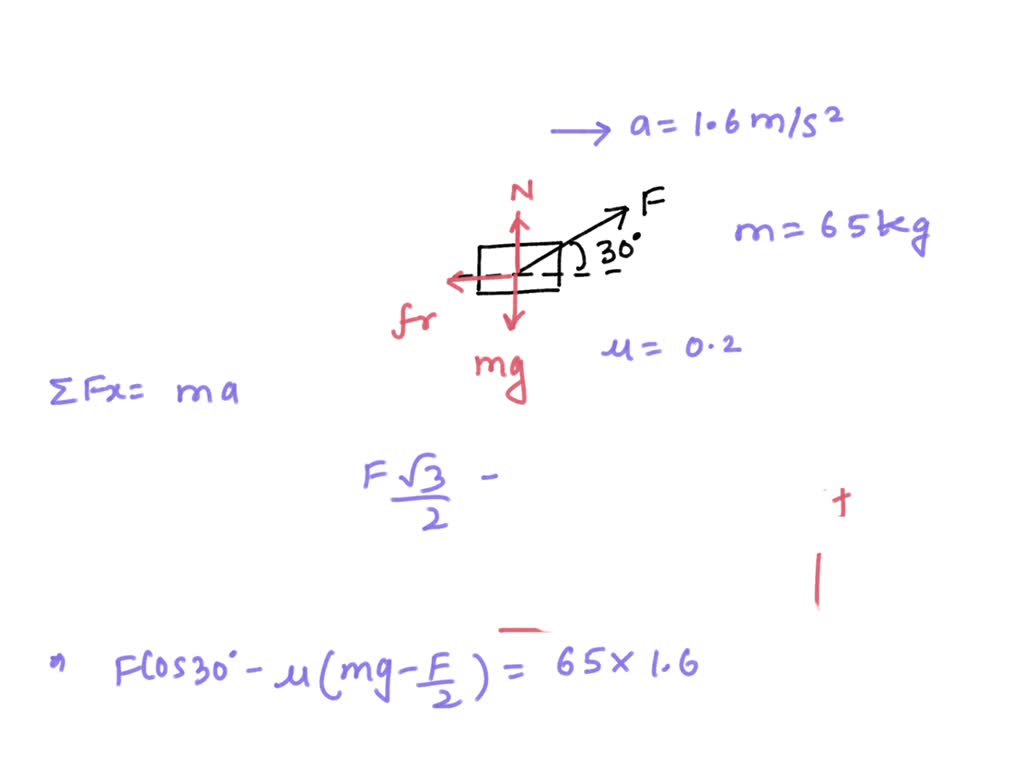 → a = 1.6 m/s²
N
F
30°
m = 65 kg
fr
mg
μ = 0.2
ΣFx = ma
F√3/2 -
+
F Cos 30° - μ(mg - F/2) = 65 × 1.6